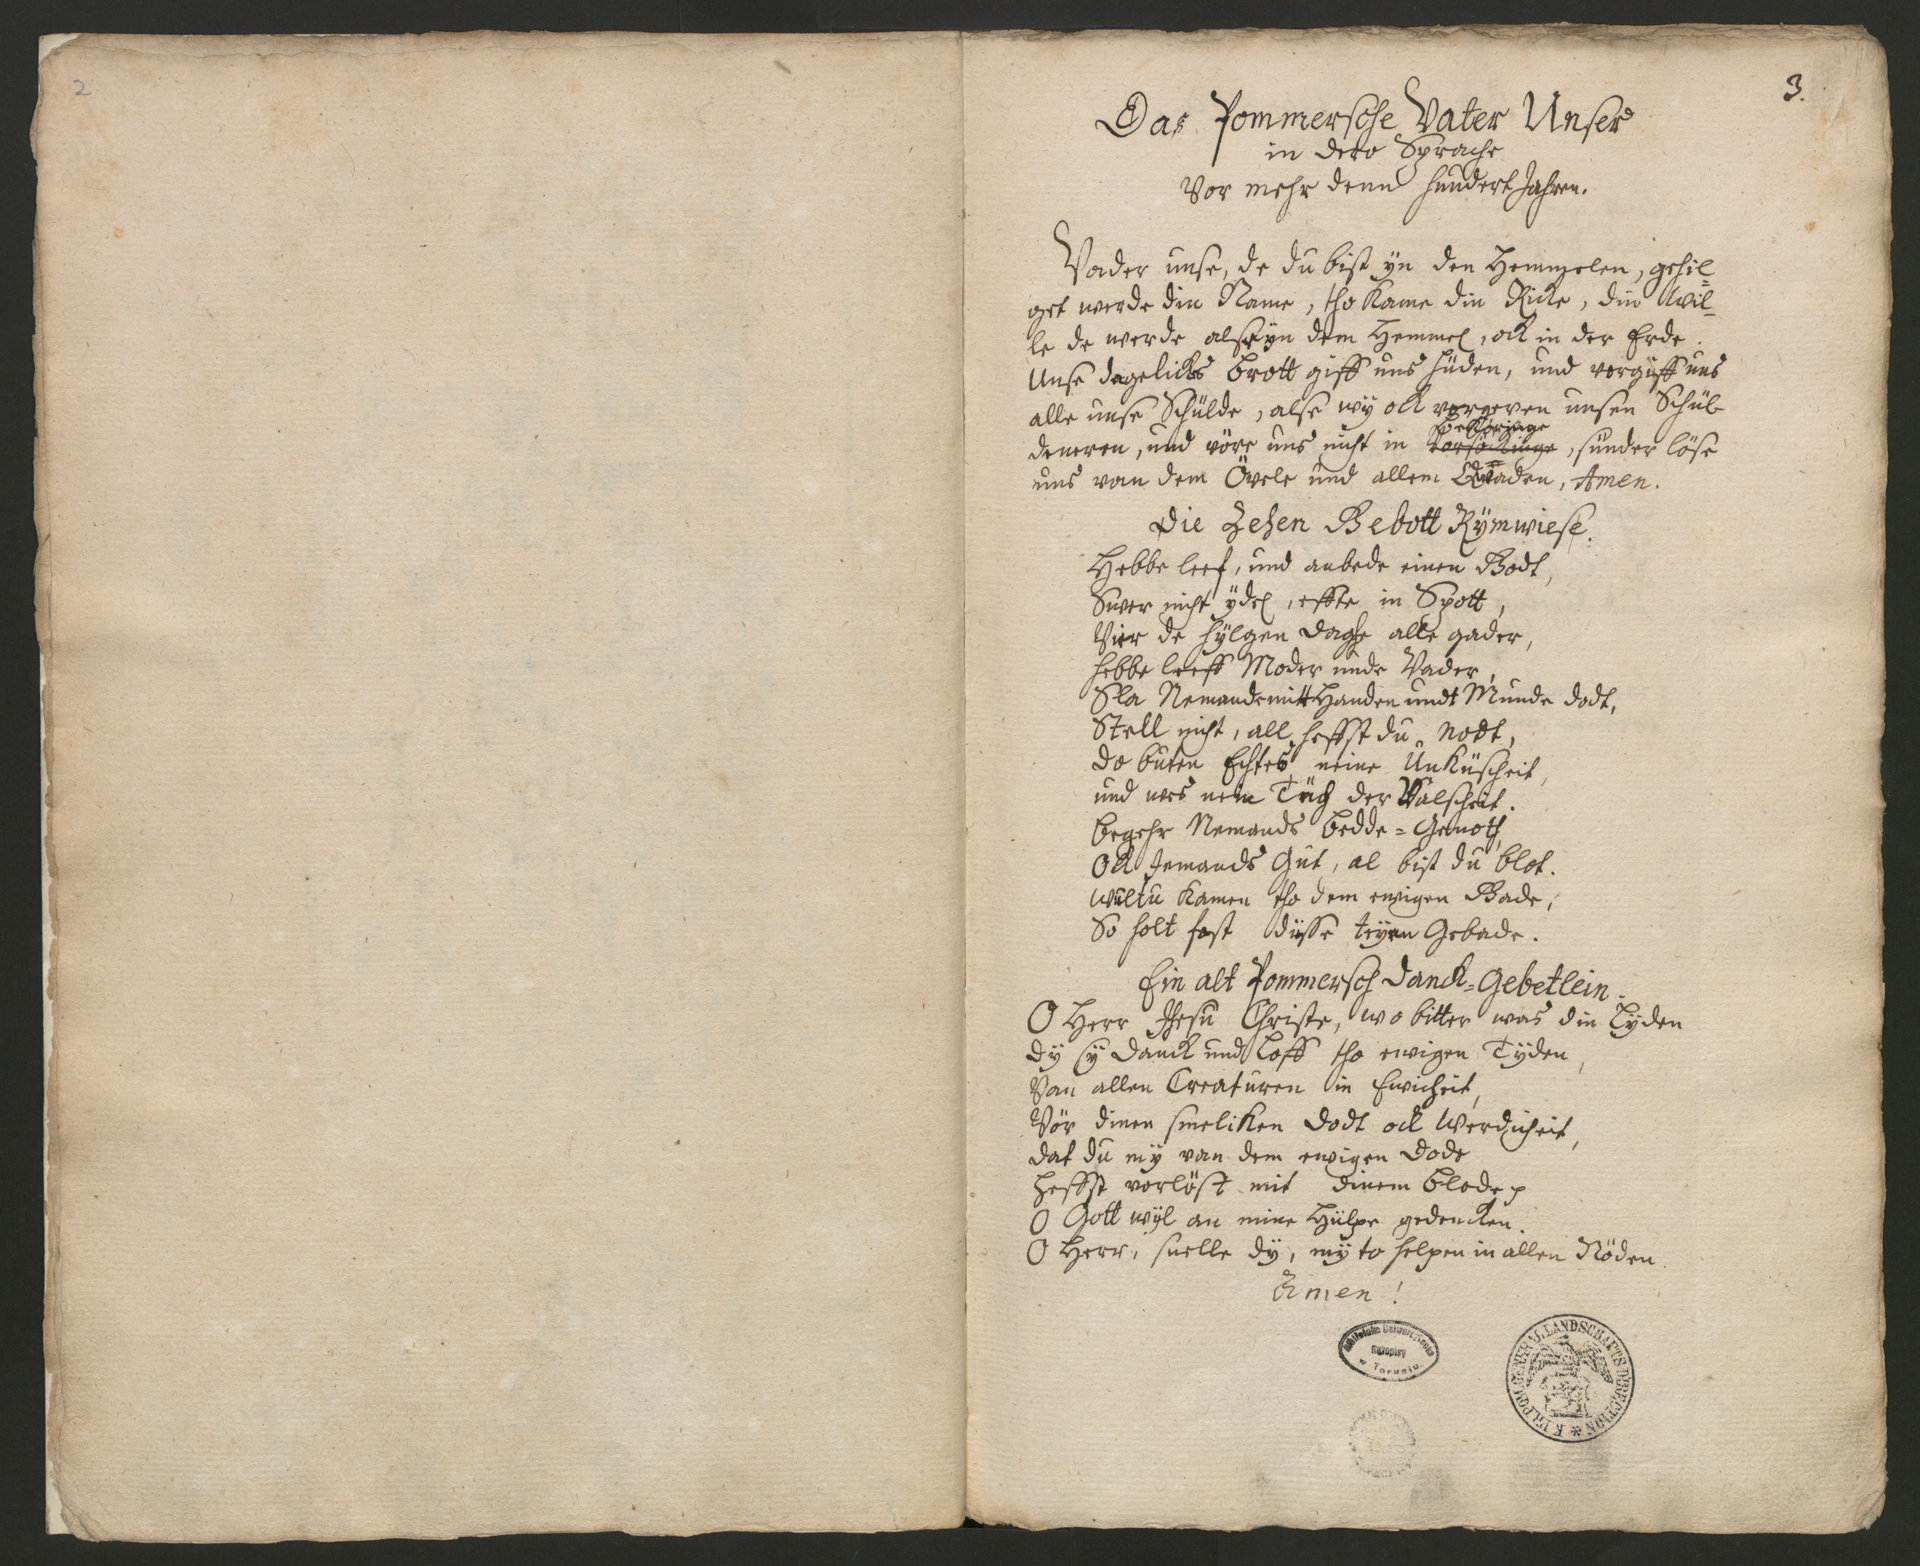 2
3.
Das Pommersche Vater Unser
in dero Sprache
vor mehr denn hundert Jahren.
Vader unse, de du bist yn den Hemmelen, gehil=
get werde din Name, tho kame din Ricke, din Wil=
le de werde alse yn dem Hemmel, ock in der Erde.
Unse dagelickes Brott giff uns hüden, und vorgiff uns
alle unse Schülde, alse wy ock vorgeven unsen Schül-
deneren, und vöre uns nicht in vorsökinge, sunder löse
bekoringe
uns van dem Övele und allem Quaden, Amen.
Die Zehen Gebott Rymwiese.
Hebbe leef, und anbede einen Godt,
Swer nicht ydel, effte in Spott,
Vier de hylgen Daghe alle gader,
hebbe leeff Moder unde Vader,
Sla Nemande mitt Handen undt Munde dodt,
Stell nicht, all heffst du Nodt,
Do buten Echtes neine Unküscheit,
und wes nein Tüch der Valscheit.
Begehr Nemands Bedde=Genoth,
Ock Jemands Gut, al bist du blot.
Wultu kamen tho dem ewigen Gade,
So holt fast düsse teyen Gebade.
Ein alt Pommersch Danck=Gebetlein.
O Herr Jhesu Christe, wo bitter was din Lyden
Dy sy Danck und Loff tho ewigen Tyden,
Van allen Creaturen in Ewicheit,
Vör dinen smeliken Dodt ock Werdicheit,
Dat du my van dem ewigen Dode
heffst vorlöst mit dinem Blode
O Gott wyl an mine Hülpe gedencken.
O Herr, snelle dy, my to helpen in allen Nöden.
Amen!
Biblioteka Uniwersytecka
Rękopisy
w Toruniu
K. PR. POM. GENERAL LANDSCHAFTS DIRECTION